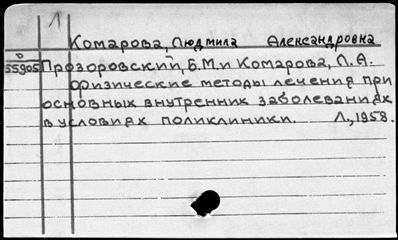 1
Комарова, Людмила Александровна
О
55905 Прозоровский, Б.М. и Комарова, Л.А.
Физические методы лечения при
основных внутренних заболеваниях
в условиях поликлиники. Л., 1958.